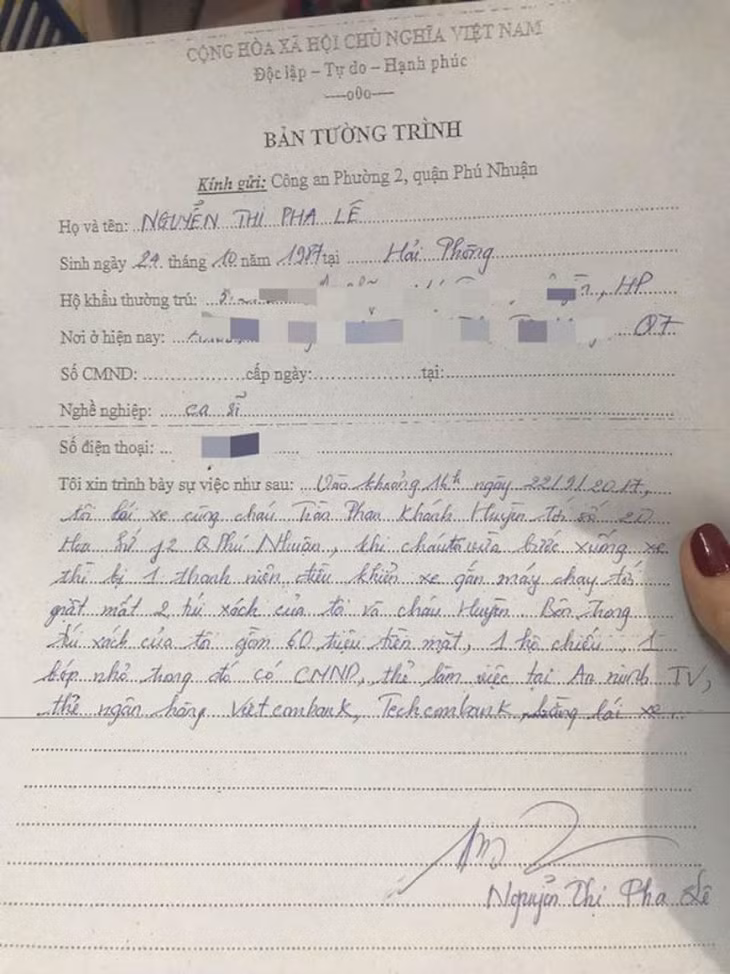 CỘNG HÒA XÃ HỘI CHỦ NGHĨA VIỆT NAM
Độc lập – Tự do – Hạnh phúc
----o0o----
BẢN TƯỜNG TRÌNH
Kính gửi: Công an Phường 2, quận Phú Nhuận
Họ và tên: NGUYỄN THỊ PHA LÊ
Sinh ngày 29 tháng 10 năm 1987 tại Hải Phòng
Hộ khẩu thường trú: , HP
Nơi ở hiện nay: Q7
Số CMND: cấp ngày: tại:
Nghề nghiệp: ca sĩ
Số điện thoại:
Tôi xin trình bày sự việc như sau: Vào khoảng 16h ngày 22/9/2017,
tôi lái xe cùng cháu Trần Phan Khánh Huyền tới số 20
Hoa Sứ f2 Q Phú Nhuận, khi cháu vừa bước xuống xe
thì bị 1 thanh niên điều khiển xe gắn máy chạy tới
giật mất 2 túi xách của tôi và cháu Huyền. Bên trong
túi xách của tôi gồm 60 triệu tiền mặt, 1 hộ chiếu, 1
bóp nhỏ trong đó có CMND, thẻ làm việc tại An ninh TV,
thẻ ngân hàng Vietcombank, Techcombank, bằng lái xe.
Nguyễn Thị Pha Lê